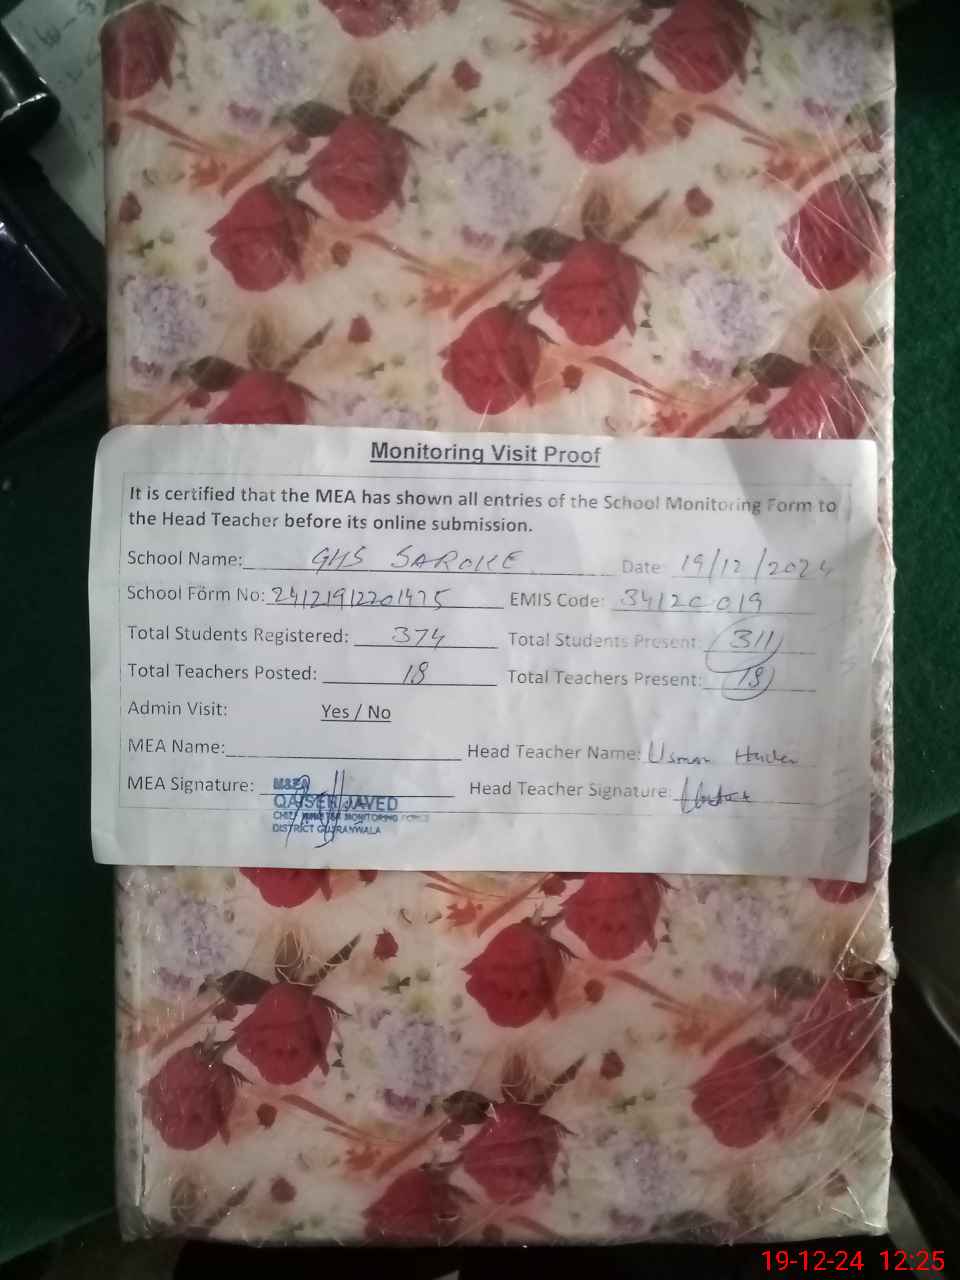 Monitoring Visit Proof
It is certified that the MEA has shown all entries of the School Monitoring Form to
the Head Teacher before its online submission.
School Name: GHS SAROKE Date: 19/12/2024
School Form No: 24121912201475 EMIS Code: 34120019
Total Students Registered: 374 Total Students Present: 311
Total Teachers Posted: 18 Total Teachers Present: 18
Admin Visit: Yes / No
MEA Name: Head Teacher Name: Usman
MEA Signature: Head Teacher Signature:
M&EA
QAISER JAVED
CHIEF MINISTER MONITORING FORCE
DISTRICT GUJRANWALA
19-12-24 12:25